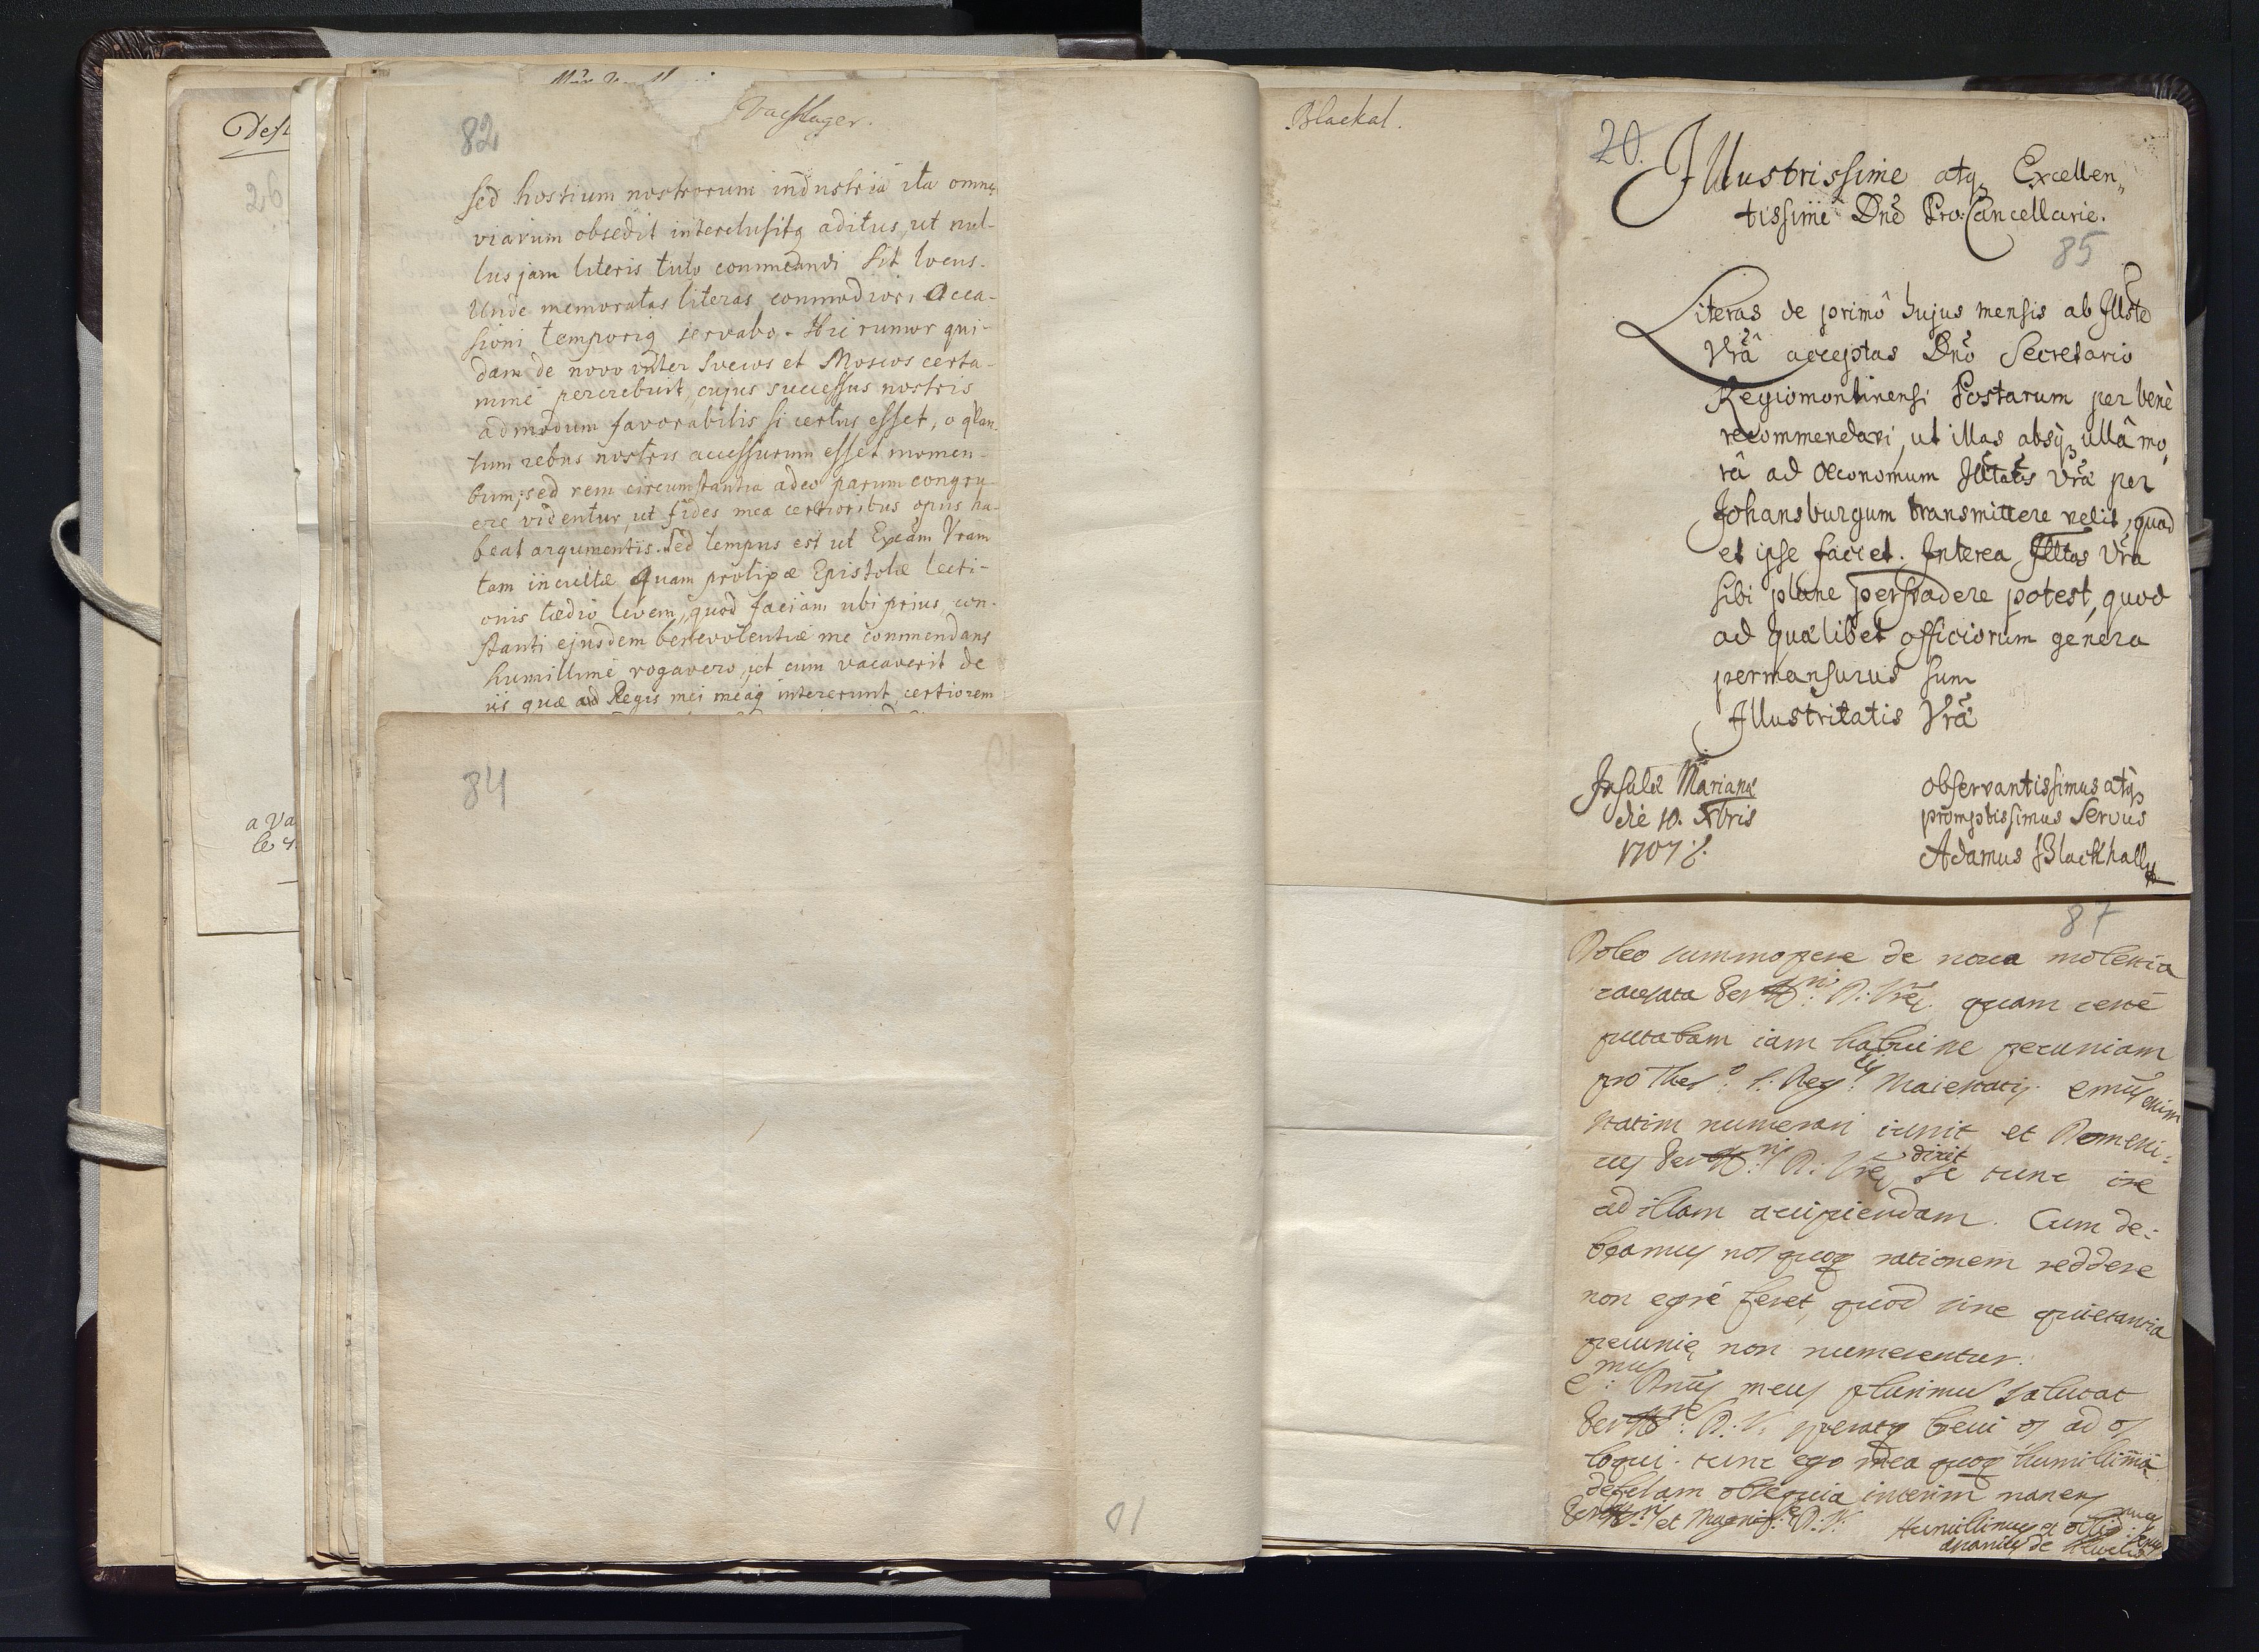 Dest
26
a Va
82
Vachslager.
sed hostium nostrorum industria ita omnē
viarum obsedit interclusitq aditus, ut nul-
lus jam literis tuto commeandi sit locus.
Unde memoratas literas commodiori occa-
sioni temporiq servabo. Hic rumor qui-
dam de novo inter Svecos et Moscos certa-
mine percrebuit, cujus successus nostris
admodum favorabilis si certus esset, o quan-
tum rebus nostris accessurum esset momen-
tum; sed rem circumstantia adeo parum congru-
ere videntur, ut fides mea certioribus opus ha-
beat argumentis. Sed tempus est ut Excām Vram
tam incultæ quam prolixæ Epistolæ lecti-
onis tædio levem, quod faciam ubi prius con-
stanti ejusdem benevolentiæ me commendans
humillimè rogavero, ut cum vacaverit de
iis quæ ad Regis mei meaq intererunt certiorem
84
10
Blackal.
20.
Illustrissime atq Excellen„
tissime Dnē Pro-Cancellarie.
85
Literas de primô hujus mensis ab Illste
Vrâ acceptas Dnō Secretario
Regiomontinensi Postarum per benè
recommendavi, ut illas absq ullâ mo„
râ ad Œconomum Illtatis Vrā per
Johansburgum transmittere velit, quod
et ipse faciet. Interea Illtas Vra
sibi plane persvadere potest, quod
ad quælibet officiorum genera
permansurus sum
Illustritatis Vrā
Insulæ Marianæ
die 10. Xbris
1707
observantissimus atq
promptissimus Servus
Adamus Blackhall
87
Doleo summopere de noua molestia
causata D: Vrę, quam certè
putabam iam habuisse pecuniam
pro S: Reg: Maiestatis. emūs enim
statim numerari iussit et Domesti-
cus D: Vrę dixit se tunc ire
ad illam accipiendam. Cum de:
beamus nos quoq rationem reddere
non egrè feret, quod sine quietantia
pecunię non numerentur.
E:mus Dnūs meus plurimum salutat
D: V: speratq breui os ad os
loqui. tunc ego mea quoq humillima
deferam obsequia interim manens
et Magnif: D: V:
Humillimus et